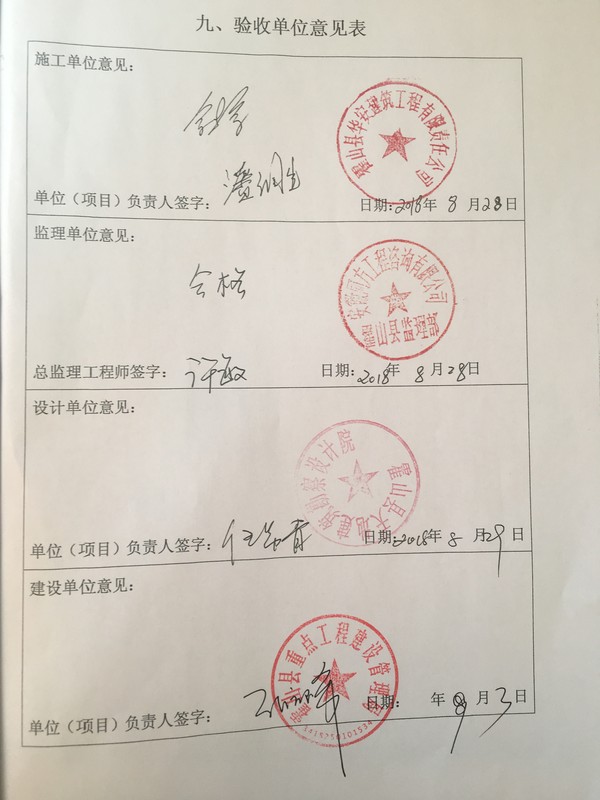 九、验收单位意见表
施工单位意见：
合格
霍山县华安建筑工程有限责任公司
单位（项目）负责人签字：
日期：2018年 8 月 28 日
监理单位意见：
合格
工程咨询有限公司
霍山县监理部
总监理工程师签字： 许敏
日期：2018 年 8 月 28 日
设计单位意见：
霍山县大地建筑勘察设计院
单位（项目）负责人签字：
日期：2018 年 8 月 29 日
建设单位意见：
霍山县重点工程建设管理局
单位（项目）负责人签字：
日期： 年 9 月 3 日